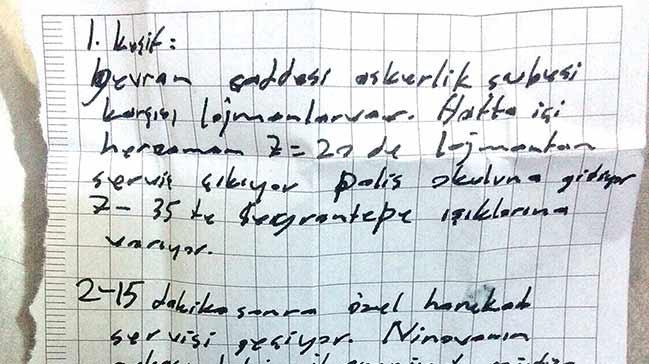 1. Keşif:
gevran caddesi askerlik şubesi
karşısı lojmanlarvar. Hafta içi
herzaman 7=20 de lojmantan
servis çıkıyor polis okuluna gidiyor
7-35 te Seyrantepe ışıklarına
varıyor.
2-15 dakika sonra özel harekat
servisi geçiyor. Ninovanın